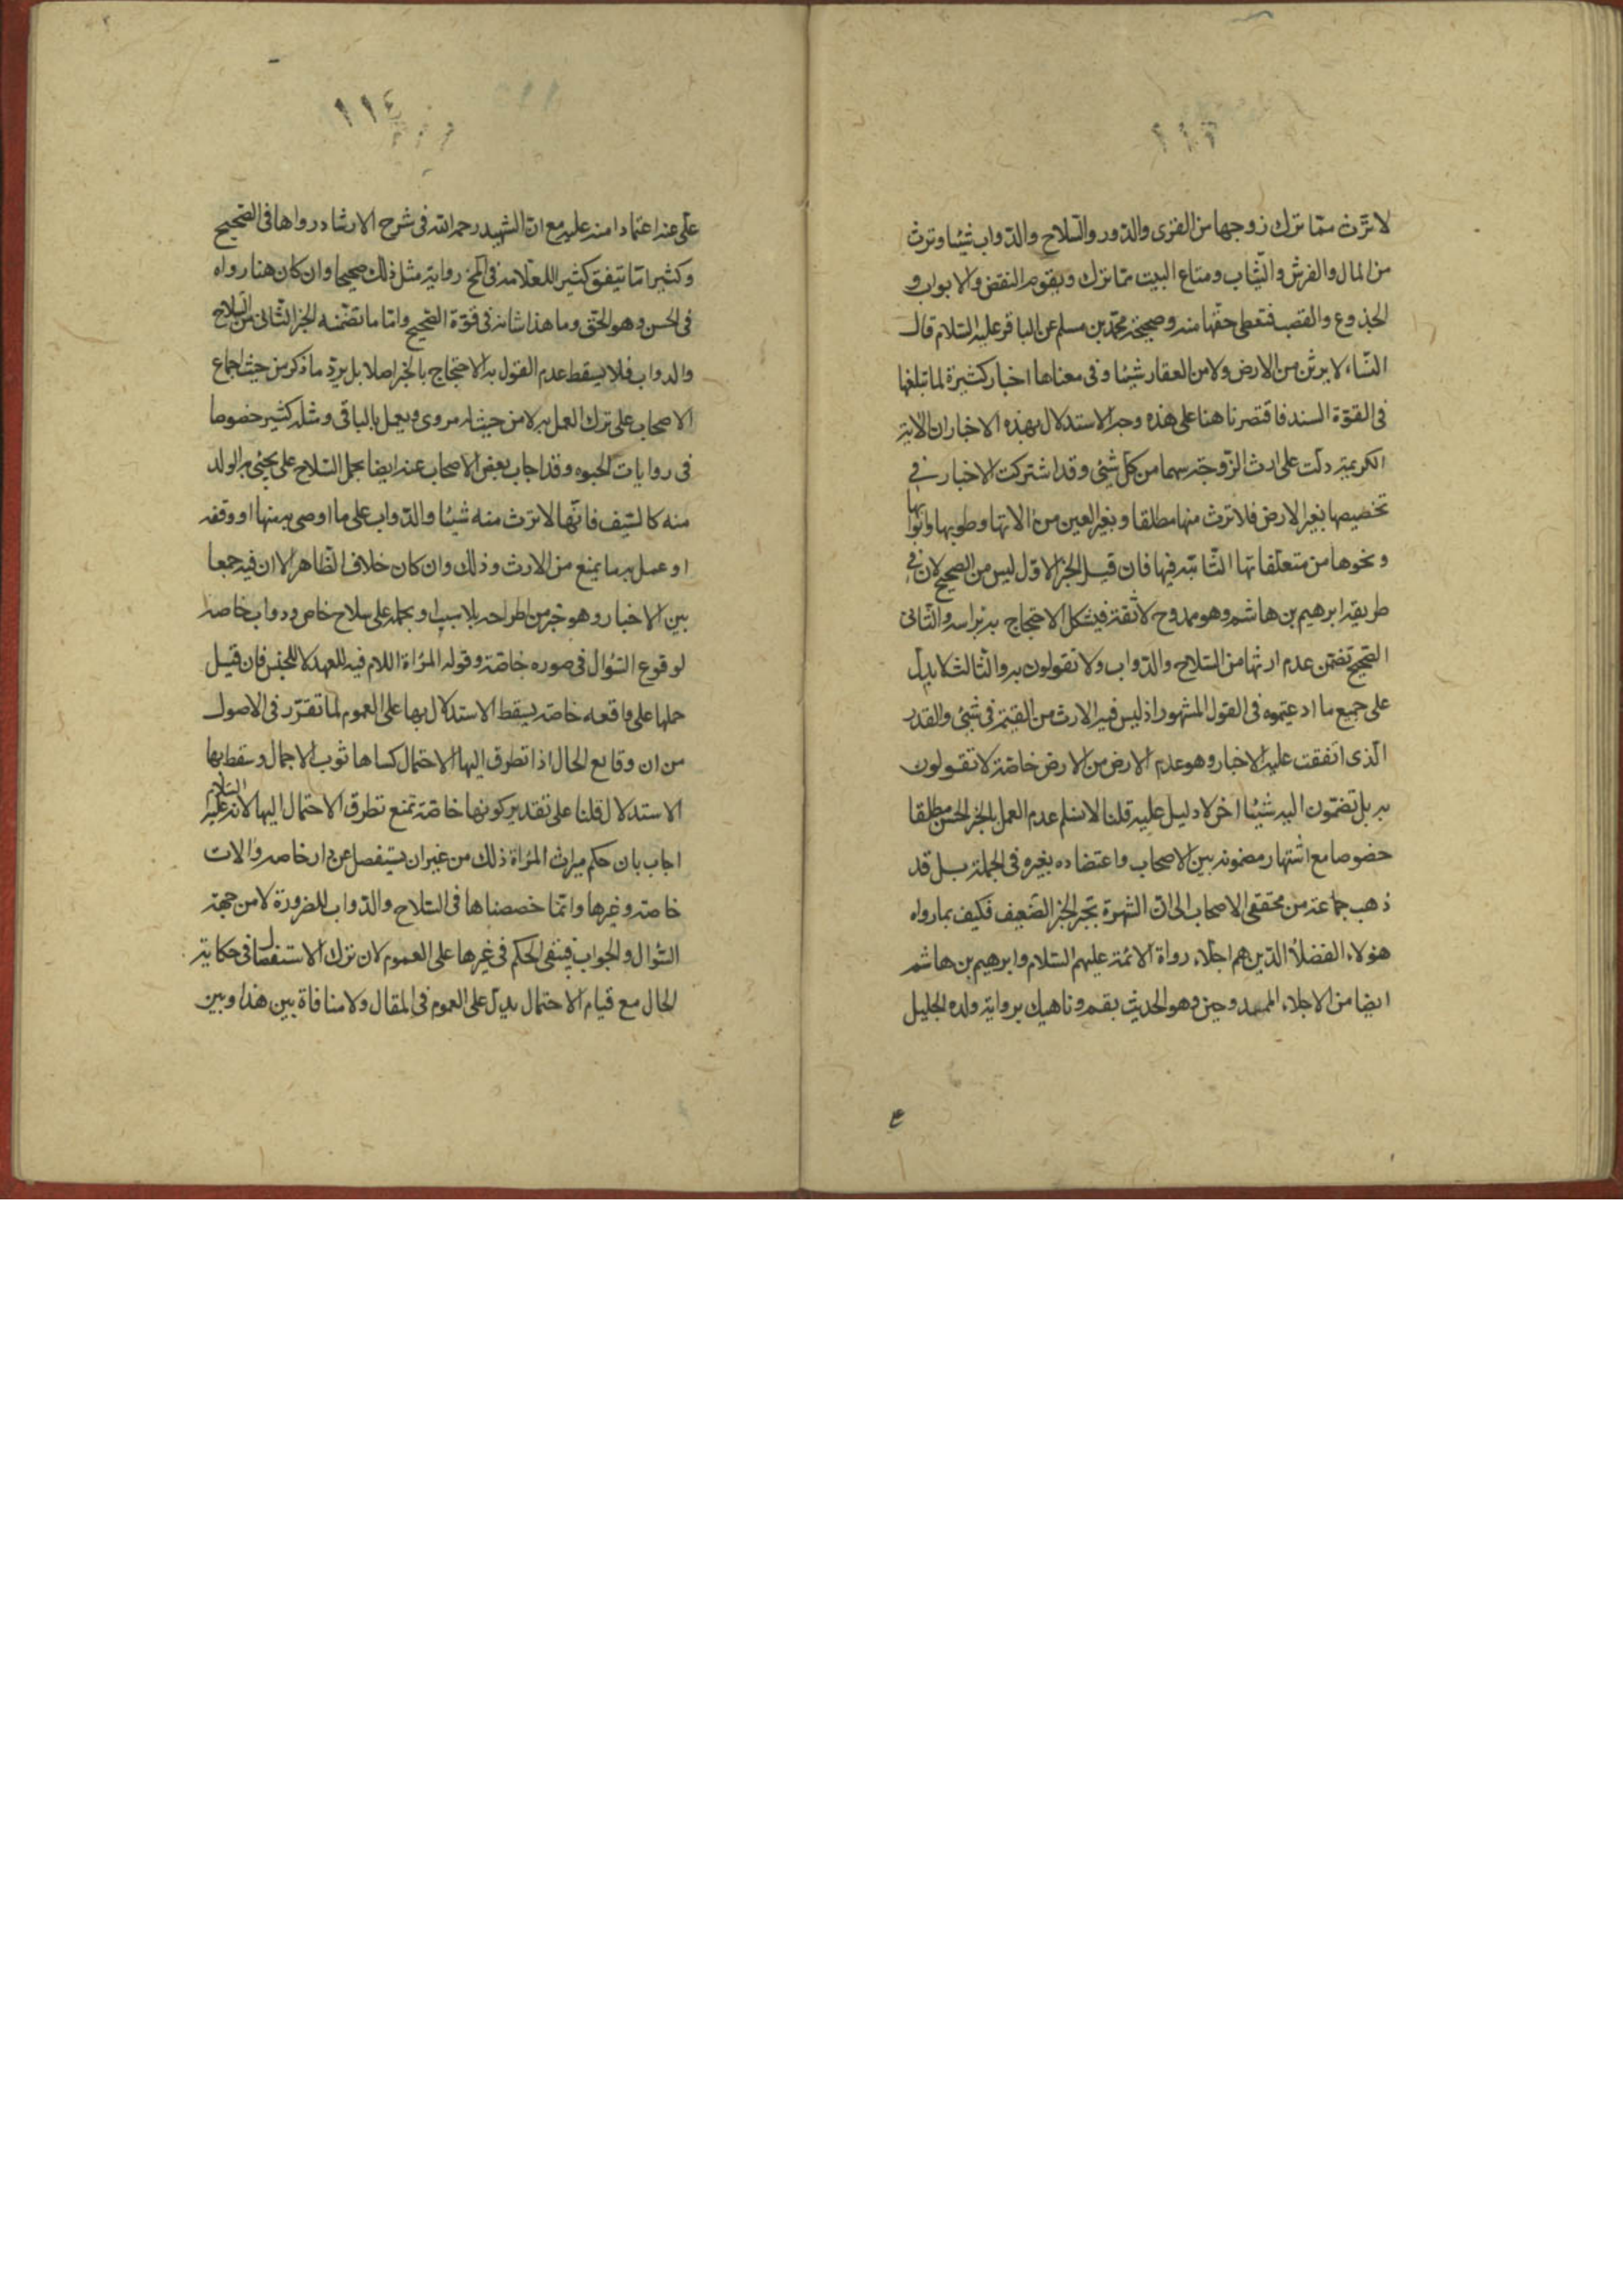 لا ترث ممّا ترك زوجها من القرى والدّور والسّلاح والدّواب شيئا وترث
من المال والفرش والثّياب ومتاع البيت ممّا ترك ويقوم النقض والابواب و
الجذوع والقصب فتعطى حقّها منه وصحيحة محمّد بن مسلم عن الباقر عليه السّلام قال
النّساء لا يرثن من الارض ولا من العقار شيئا وفى معناها اخبار كثيرة لما تبلغها
فى القوّة السند فاقتصرنا هنا على هذه وجه الاستدلال بهذه الاخبار ان الاية
الكريمة دلّت على ارث الزّوجة سهما من كلّ شيئى وقد اشتركت الاخبار في
تخصيصها بغير الارض فلا ترث منها مطلقا وبغير العين من الاتها وطوبها وابوابها
ونحوها من متعلّقاتها الثّابته فيها فان قيل الخبر الاوّل ليس من الصحيح لان في
طريقه ابرهيم بن هاشم وهو ممدوح لا ثقة فيشكل الاحتجاج به براسه والثّانى
الصّحيح تضمّن عدم ارثها من السّلاح والدّواب ولا تقولون به والثّالث لا يدلّ
على جميع ما ادعيتموه فى القول المشهور اذ ليس فيه الارث من القيمة فى شيئى والقدر
الّذى اتّفقت عليه الاخبار وهو عدم الارض من الارض خاصّة لا تقولون
به بل تضمّون اليه شيئا اخر لا دليل عليه قلنا لا نسلم عدم العمل بالخبر الحسن مطلقا
خصوصا مع اشتهار مضمونه بين الاصحاب واعتضاده بغيره فى الجملة بل قد
ذهب جماعة من محققى الاصحاب الى انّ الشهرة تجبر الخبر الضّعيف فكيف بما رواه
هؤلاء الفضلا الذّين هم اجلّاء رواة الائمّة عليهم السّلام وابرهيم بن هاشم
ايضا من الاجلاء الممدوحين وهو الحديث بقم وناهيك برواية ولده الجليل
ع
١١٤
علّى عنه اعتمادا منه عليه مع انّ الشّهيد رحمه الله فى شرح الارشاد رواها فى الصّحيح
وكثيرا مّا يتيفق كثير للعلّامه فى المخ رواية مثل ذلك صحيحا وان كان هنا رواه
فى الحسن وهو الحقّ وما هذا شانه فى قوّة الصّحيح وامّا ما تضمّنه الخبر الثّانى من السّلاح
والدواب فلا يسقط عدم القول به الاحتجاج بالخبر اصلا بل يردّ ما ذكر من حيث اجماع
الاصحاب على ترك العمل به لا من حيث انه مروى ويعمل بالباقى ومثله كثير خصوصا
فى روايات الحبوه وقد اجاب بعض الاصحاب عنه ايضا بحمل السّلاح على يحبى به الولد
منه كالسّيف فانّها لا ترث منه شيئا والدّواب على ما اوصى به منها او وقفه
او عمل به ما يمنع من الارث وذلك وان كان خلاف الظّاهر الا ان فيه جمعا
بين الاخبار وهو خير من اطراحه بلا سبب او بحمله على سلاح خاص ودواب خاصه
لوقوع السّؤال فى صوره خاصّة وقوله المرأة اللام فيه للعهد لا للجنس فان قيل
حملها على واقعه خاصّه يسقط الاستدلال بها على العموم لما تقرّر فى الاصول
من ان وقايع الحال اذا تطرق اليها الاحتمال كساها ثوب الاجمال وسقط بها
الاستدلال قلنا على تقدير كونها خاصّة تمنع تطرق الاحتمال اليها لانه عليه السّلام
اجاب بان حكم ميراث المرأة ذلك من غير ان يستفصل عن دار خاصه والات
خاصّه وغيرها وانّما خصصناها فى السّلاح والدّواب للضرورة لا من جهة
السّؤال والجواب فيبقى الحكم فى غيرها على العموم لان ترك الاستفصال فى حكاية
الحال مع قيام الاحتمال يدلّ على العموم فى المقال ولا منافاة بين هذا وبين